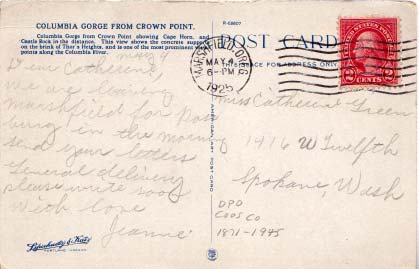 COLUMBIA GORGE FROM CROWN POINT.
Columbia Gorge from Crown Point showing Cape Horn, and
Castle Rock in the distance. This view shows the concrete support
on the brink of Thor's Heights, and is one of the most prominent view
points along the Columbia River.
May 4
Dear Catherine
we are leaving
Marshfield for Rose
burg in the morning
send your letters
General delivery
please write soon
With love
Jeanne
Lipschuetz & Katz
PORTLAND, OREGON
AMERICAN ART POST CARD
R-68607
POST CARD
THIS SPACE FOR ADDRESS ONLY
MARSHFIELD, OREG.
MAY 4
6-PM
1925
UNITED STATES POSTAGE
2 CENTS 2
Miss Catherine Green
1416 W Twelfth
Spokane, Wash
DPO
COOS CO
1871-1945